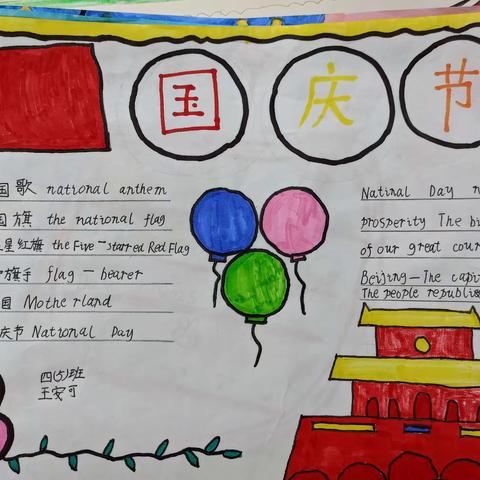 国庆节
国歌 national anthem
国旗 the national flag
星红旗 the Five-starred Red Flag
旗手 flag-bearer
国 Motherland
庆节 National Day
四(5)班
王安可
Natinal Day
prosperity The
of our great
Beijing-The
The people